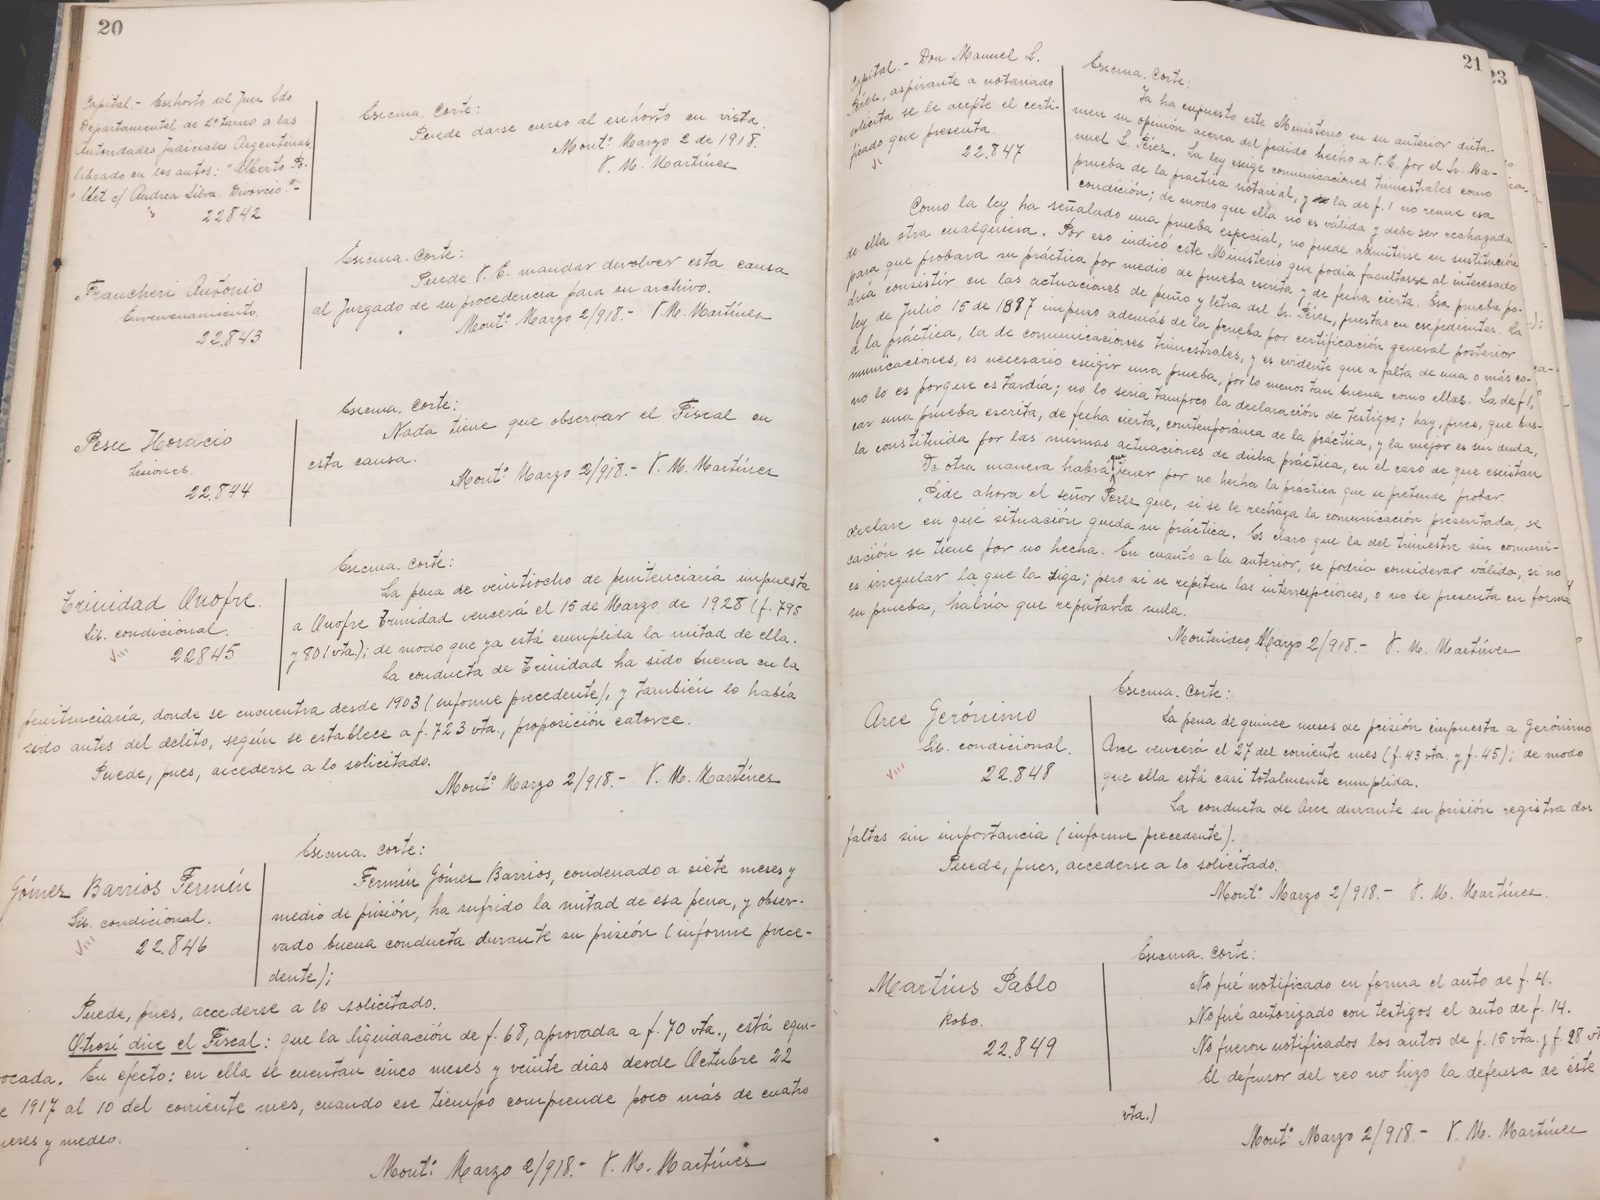 20
Capital.- Exhorto del Juez Ldo.
Departamental de 2º turno a las
Autoridades Judiciales Argentinas,
librado en los autos: "Alberto
c/ Andrea Silva. Divorcio."-
22842
Exema. Corte:
Puede darse curso al exhorto en vista.
Mont.º Marzo 2 de 1918.
V. M. Martínez
Francheri Antonio
Envenenamiento.
22.843
Exema. Corte:
Puede V.E. mandar devolver esta causa
al Juzgado de su procedencia para su archivo.
Mont.º Marzo 2/918.- V. M. Martínez
Pesce Horacio
Lesiones.
22.844
Exema. Corte:
Nada tiene que observar el Fiscal en
esta causa.
Mont.º Marzo 2/918.- V. M. Martínez
Trinidad Onofre.
Lib. condicional.
22845
Exema. Corte:
La pena de veintiocho de penitenciaría impuesta
a Onofre Trinidad vencerá el 15 de Marzo de 1928 (f. 795
y 801 vta.); de modo que ya está cumplida la mitad de ella.
La conducta de Trinidad ha sido buena en la
penitenciaría, donde se encuentra desde 1903 (informe precedente), y también lo había
sido antes del delito, según se establece a f. 723 vta., proposición catorce.
Puede, pues, accederse a lo solicitado.
Mont.º Marzo 2/918.- V. M. Martínez
Gómez Barrios Fermín
Lib. condicional.
22.846
Exema. Corte:
Fermín Gómez Barrios, condenado a siete meses y
medio de prisión, ha sufrido la mitad de esa pena, y obser-
vado buena conducta durante su prisión (informe prece-
dente);
Puede, pues, accederse a lo solicitado.
Otrosí dice el Fiscal: que la liquidación de f. 68, aprovada a f. 70 vta., está equi-
vocada. En efecto: en ella se cuentan cinco meses y veinte dias desde Octubre 22
de 1917 al 10 del corriente mes, cuando ese tiempo comprende poco más de cuatro
meses y medio.
Mont.º Marzo 2/918.- V. M. Martínez
21
23
Capital.- Don Manuel L.
Pérez, aspirante a notariado
solicita se le acepte el certi-
ficado que presenta.
22.847
Exema. Corte:
Ya ha expuesto este Ministerio en su anterior dicta-
men su opinión acerca del pedido hecho a V. E. por el Sr. Ma-
nuel L. Pérez. La ley exige comunicaciones trimestrales como
prueba de la práctica notarial, y la de f. 1 no reune esa
condición; de modo que ella no es válida y debe ser rechazada
Como la ley ha señalado una prueba especial, no puede admitirse en sustitución
de ella otra cualquiera. Por eso indicó este Ministerio que podía facultarse al interesado
para que probara su práctica por medio de prueba escrita y de fecha cierta. Esa prueba po-
dría consistir en las actuaciones de puño y letra del Sr. Pérez, puestas en expedientes. La
ley de Julio 15 de 1887 impuso además de la prueba por certificación general posterior
a la práctica, la de comunicaciones trimestrales, y es evidente que a falta de una o más co-
municaciones, es necesario exigir una prueba, por lo menos tan buena como ellas. La de f. 1,
no lo es porque es tardía; no lo sería tampoco la declaración de testigos; hay, pues, que bus-
car una prueba escrita, de fecha cierta, contemporánea de la práctica, y la mejor es sin duda,
la constituida por las mismas actuaciones de dicha práctica, en el caso de que existan
De otra manera habrá que tener por no hecha la práctica que se pretende probar.
Pide ahora el señor Pérez que, si se le rechaza la comunicación presentada, se
aclare en qué situación queda su práctica. Es claro que la del trimestre sin comuni-
cación se tiene por no hecha. En cuanto a la anterior, se podría considerar válida, si no
es irregular la que la siga; pero si se repiten las interrupciones, o no se presenta en forma
su prueba, habría que reputarla nula.
Montevideo, Marzo 2/918.- V. M. Martínez
Arce Gerónimo
Lib. condicional.
22.848
Exema. Corte:
La pena de quince meses de prisión impuesta a Gerónimo
Arce vencerá el 27 del corriente mes (f. 43 vta. y f. 45); de modo
que ella está casi totalmente cumplida.
La conducta de Arce durante su prisión registra dos
faltas sin importancia (informe precedente).
Puede, pues, accederse a lo solicitado.
Mont.º Marzo 2/918.- V. M. Martínez.
Martins Pablo
Robo.
22.849
Exema. Corte:
No fué notificado en forma el auto de f. 4.
No fué autorizado con testigos el auto de f. 14.
No fueron notificados los autos de f. 15 vta. y f. 28
El defensor del reo no hizo la defensa de éste
vta.)
Mont.º Marzo 2/918.- V. M. Martínez